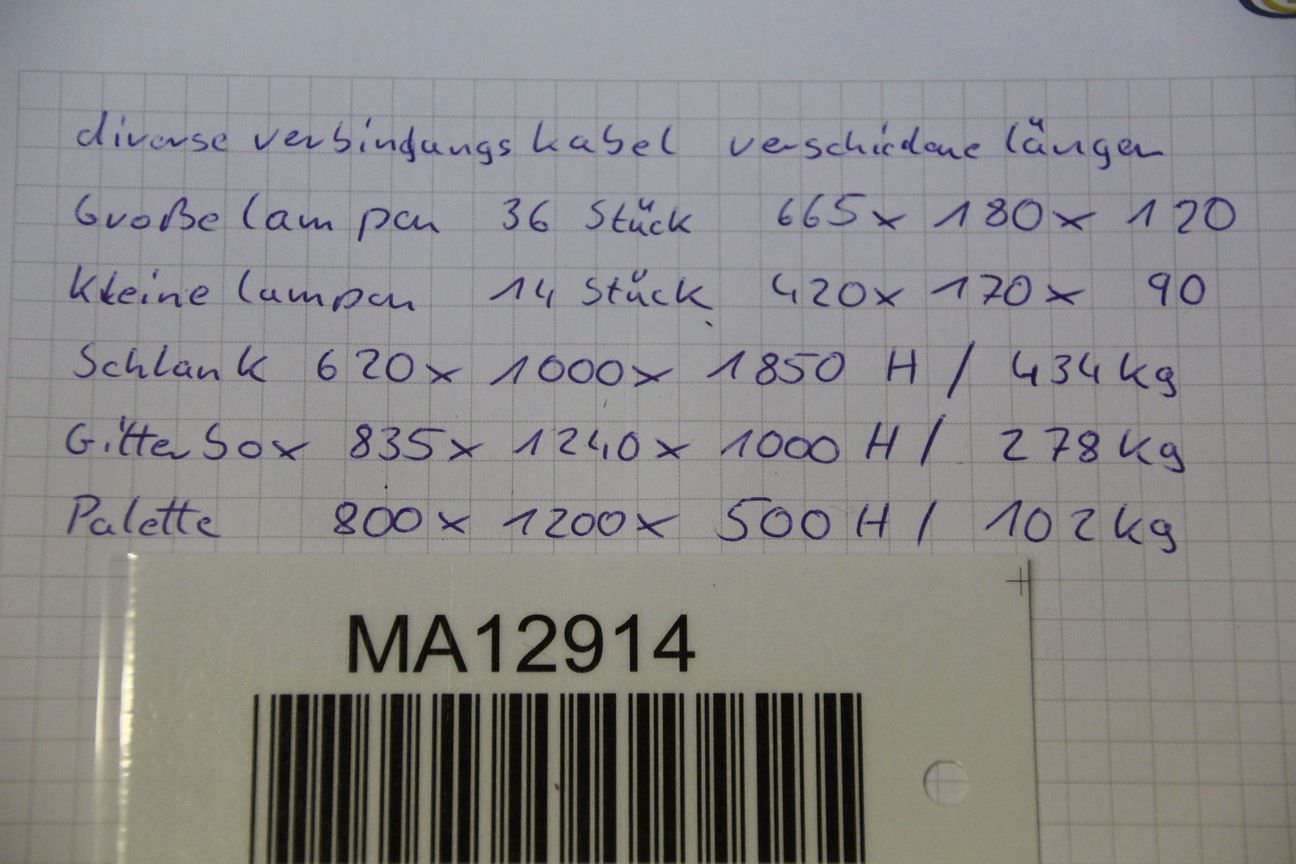 diverse verbindungskabel verschiedene längen
Große lampen 36 Stück 665 x 180 x 120
Kleine lampen 14 Stück 420 x 170 x 90
Schlank 620 x 1000 x 1850 H / 434 kg
Gitterbox 835 x 1240 x 1000 H / 278 kg
Palette 800 x 1200 x 500 H / 102 kg
MA12914